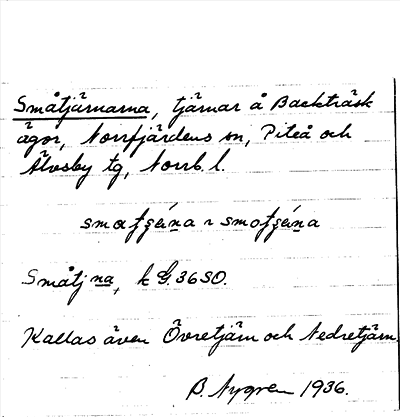 Småtjärnarna, tjärnar å Backträsk
ägor, Norrfjärdens sn, Piteå och
Älvsby tg, Norrb. l.
Småtj na, k G. 36 SO.
Kallas även Övretjärn och Nedretjärn.
B. Nygren 1936.